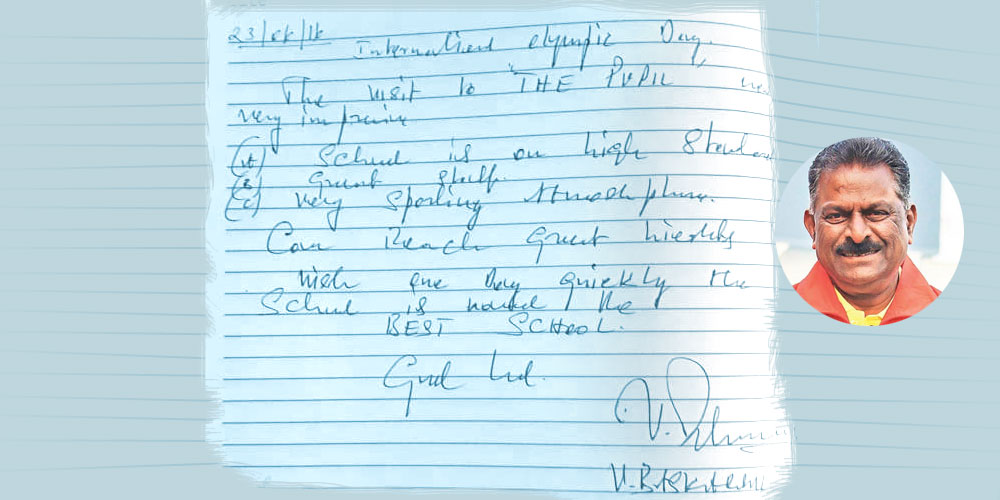 23/06/18
International Olympic Day.
The visit to "THE PUPIL" was
very impressive
(A) School is on high Standard
(B) Great staff.
(C) very Sporting Atmosphere.
Can Reach Great hieghts
wish one Day quickly the
School is named the
BEST SCHOOL.
Good luck.
V. BASKARAN